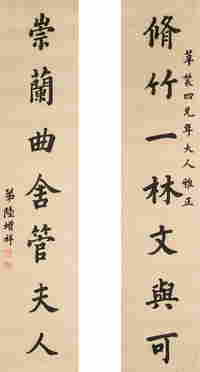 脩竹一林文與可
苹裳四兄年大人雅正
崇蘭曲舍管夫人
弟陸增祥